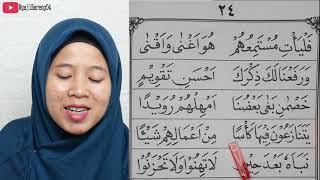 NgajiBareng04
٢٤
فَلْيَأْتِ مُسْتَمِعُهُمْ هُوَ اَغْنٰى وَاَقْنٰى
وَرَفَعْنَا لَكَ ذِكْرَكَ اَحْسَنِ تَقْوِيْمٍ
خَصْمٰنِ بَغٰى بَعْضُنَا اَمْهِلْهُمْ رُوَيْدًا
يَتَنَازَعُوْنَ فِيْهَا كَأْسًا مِنْ اَعْمَالِهِمْ شَيْئًا
نَبَاَهٗ بَعْدَ حِيْنٍ لَا تَهِنُوْا وَلَا تَحْزَنُوْا